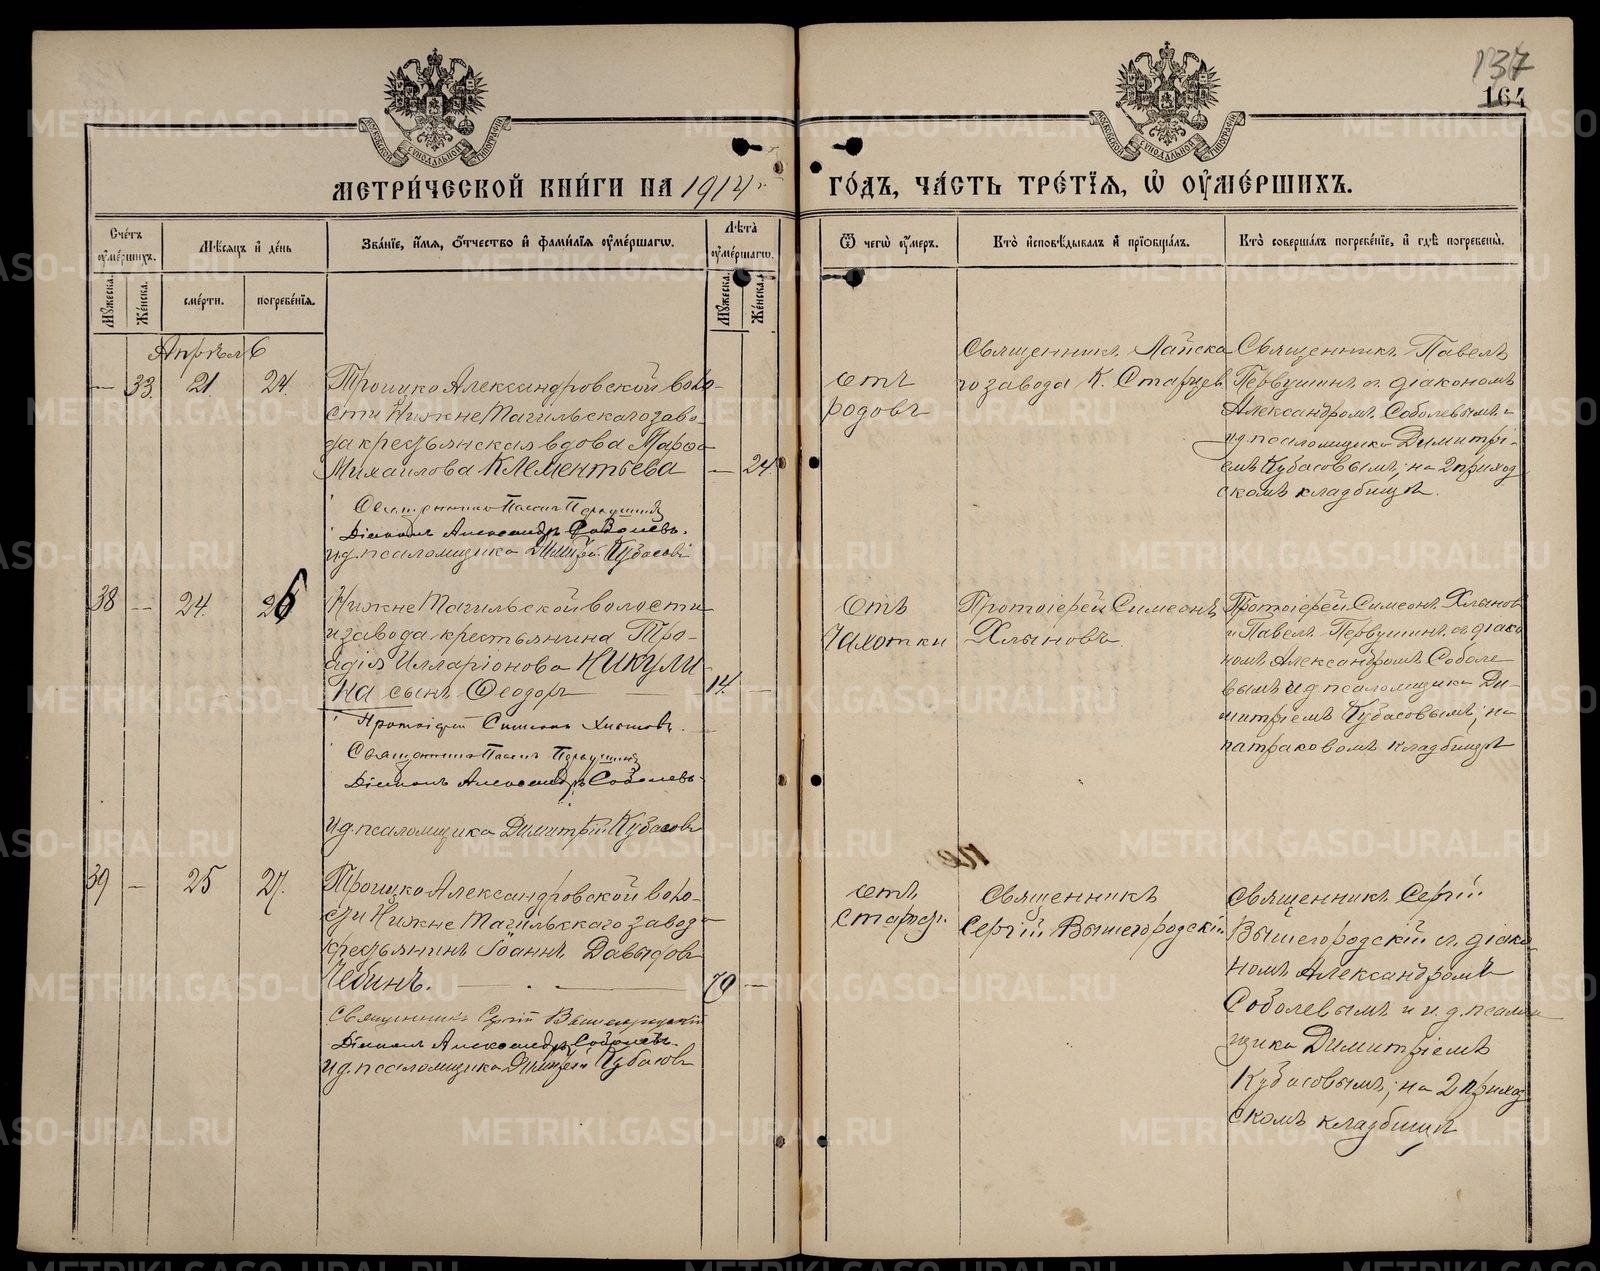 137
164
МОСКОВСКОЙ СѴНОДАЛЬНОЙ ТИПОГРАФІИ
МОСКОВСКОЙ СѴНОДАЛЬНОЙ ТИПОГРАФІИ
МЕТРИ́ЧЕСКОЙ КНИ́ГИ НА 1914 г.
ГО́ДЪ, ЧА́СТЬ ТРЕ́ТІѦ, Ѡ҆ ОУ҆МЕ́РШИХЪ.
Сче́тъ оу҆ме́ршихъ.
Мѣ́сѧцъ и҆ де́нь
Зва́нїе, и҆́мѧ, ѻ҆́тчество и҆ фами́лїѧ оу҆ме́ршагѡ.
Лѣ́та оу҆ме́ршагѡ.
Ѿ чегѡ̀ оу҆́меръ.
Кто̀ и҆сповѣ́дывалъ и҆ прїѡбща́лъ.
Кто̀ соверша́лъ погребе́нїе, и҆ гдѣ̀ погребены̀.
Мꙋ́жеска.
Же́нска.
сме́рти.
погребе́нїѧ.
Мꙋ́жеска.
Же́нска.
Апрѣль
— 33. 21. 24.
Троицко Александровской воло-
сти Нижне Тагильскаго заво-
да крестьянская вдова Марѳа
Михаилова Клементьева — 24
Священникъ Павелъ Первушинъ
Діаконъ Александръ Соболевъ.
и.д. псаломщика Димитрій Кубасовъ
отъ
родовъ
Священникъ Лайска
го завода К. Старцев
Священникъ Павелъ
Первушинъ съ діакономъ
Александромъ Соболевымъ и
и.д. псаломщика Димитрі-
емъ Кубасовымъ; на 2 приход
скомъ кладбищѣ.
38 — 24. 26
Нижне Тагильской волости
и завода крестьянина
Илларіонова Никули-
на сынъ Ѳеодоръ — 14. —
Протоіерей Симеонъ Хлыновъ.
Священникъ Павелъ Первушинъ
Діаконъ Александръ Соболевъ
и.д. псаломщика Димитрій Кубасовъ
отъ
чахотки
Протоіерей Симеонъ
Хлыновъ
Протоіерей Симеонъ Хлынов
и Павелъ Первушинъ съ діако
номъ Александромъ Соболе
вымъ и.д. псаломщика Ди-
митріемъ Кубасовымъ; на
кладбищѣ
39 — 25 27.
Троицко Александровской воло-
сти Нижне Тагильскаго завода
крестьянинъ Іоаннъ Давыдовъ
Чебинъ. — 79 —
Священникъ Сергій Вышегородскій
Діаконъ Александръ Соболевъ
и.д. псаломщика Димитрій Кубасовъ
отъ
старост.
Священникъ
Сергій Вышегородскій
Священникъ Сергій
Вышегородскій съ діако
номъ Александромъ
Соболевымъ и и.д. псалом
щика Димитріемъ
Кубасовымъ; на 2 приход
скомъ кладбищѣ
METRIKI.GASO-URAL.RU